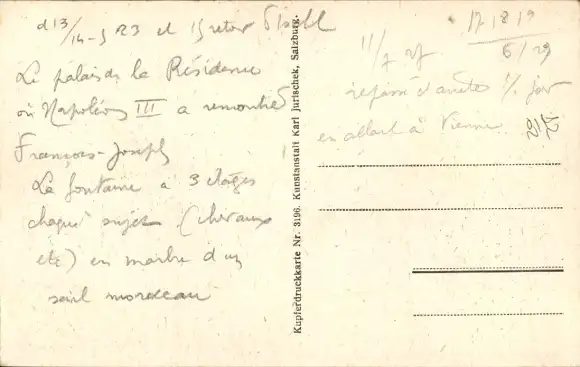 13/14-5 23 et
Le palais de la Résidence
où Napoléon III a rencontré
François-Joseph
La fontaine a 3 étages
chaque sujet (chevaux
etc) en marbre d'un
seul morceau
Kupferdruckkarte Nr. 3196. Kunstanstalt Karl Jurischek, Salzburg.
17 18 19
6/29
11/7 27
repassé et arrêté ½ jour
en allant à Vienne